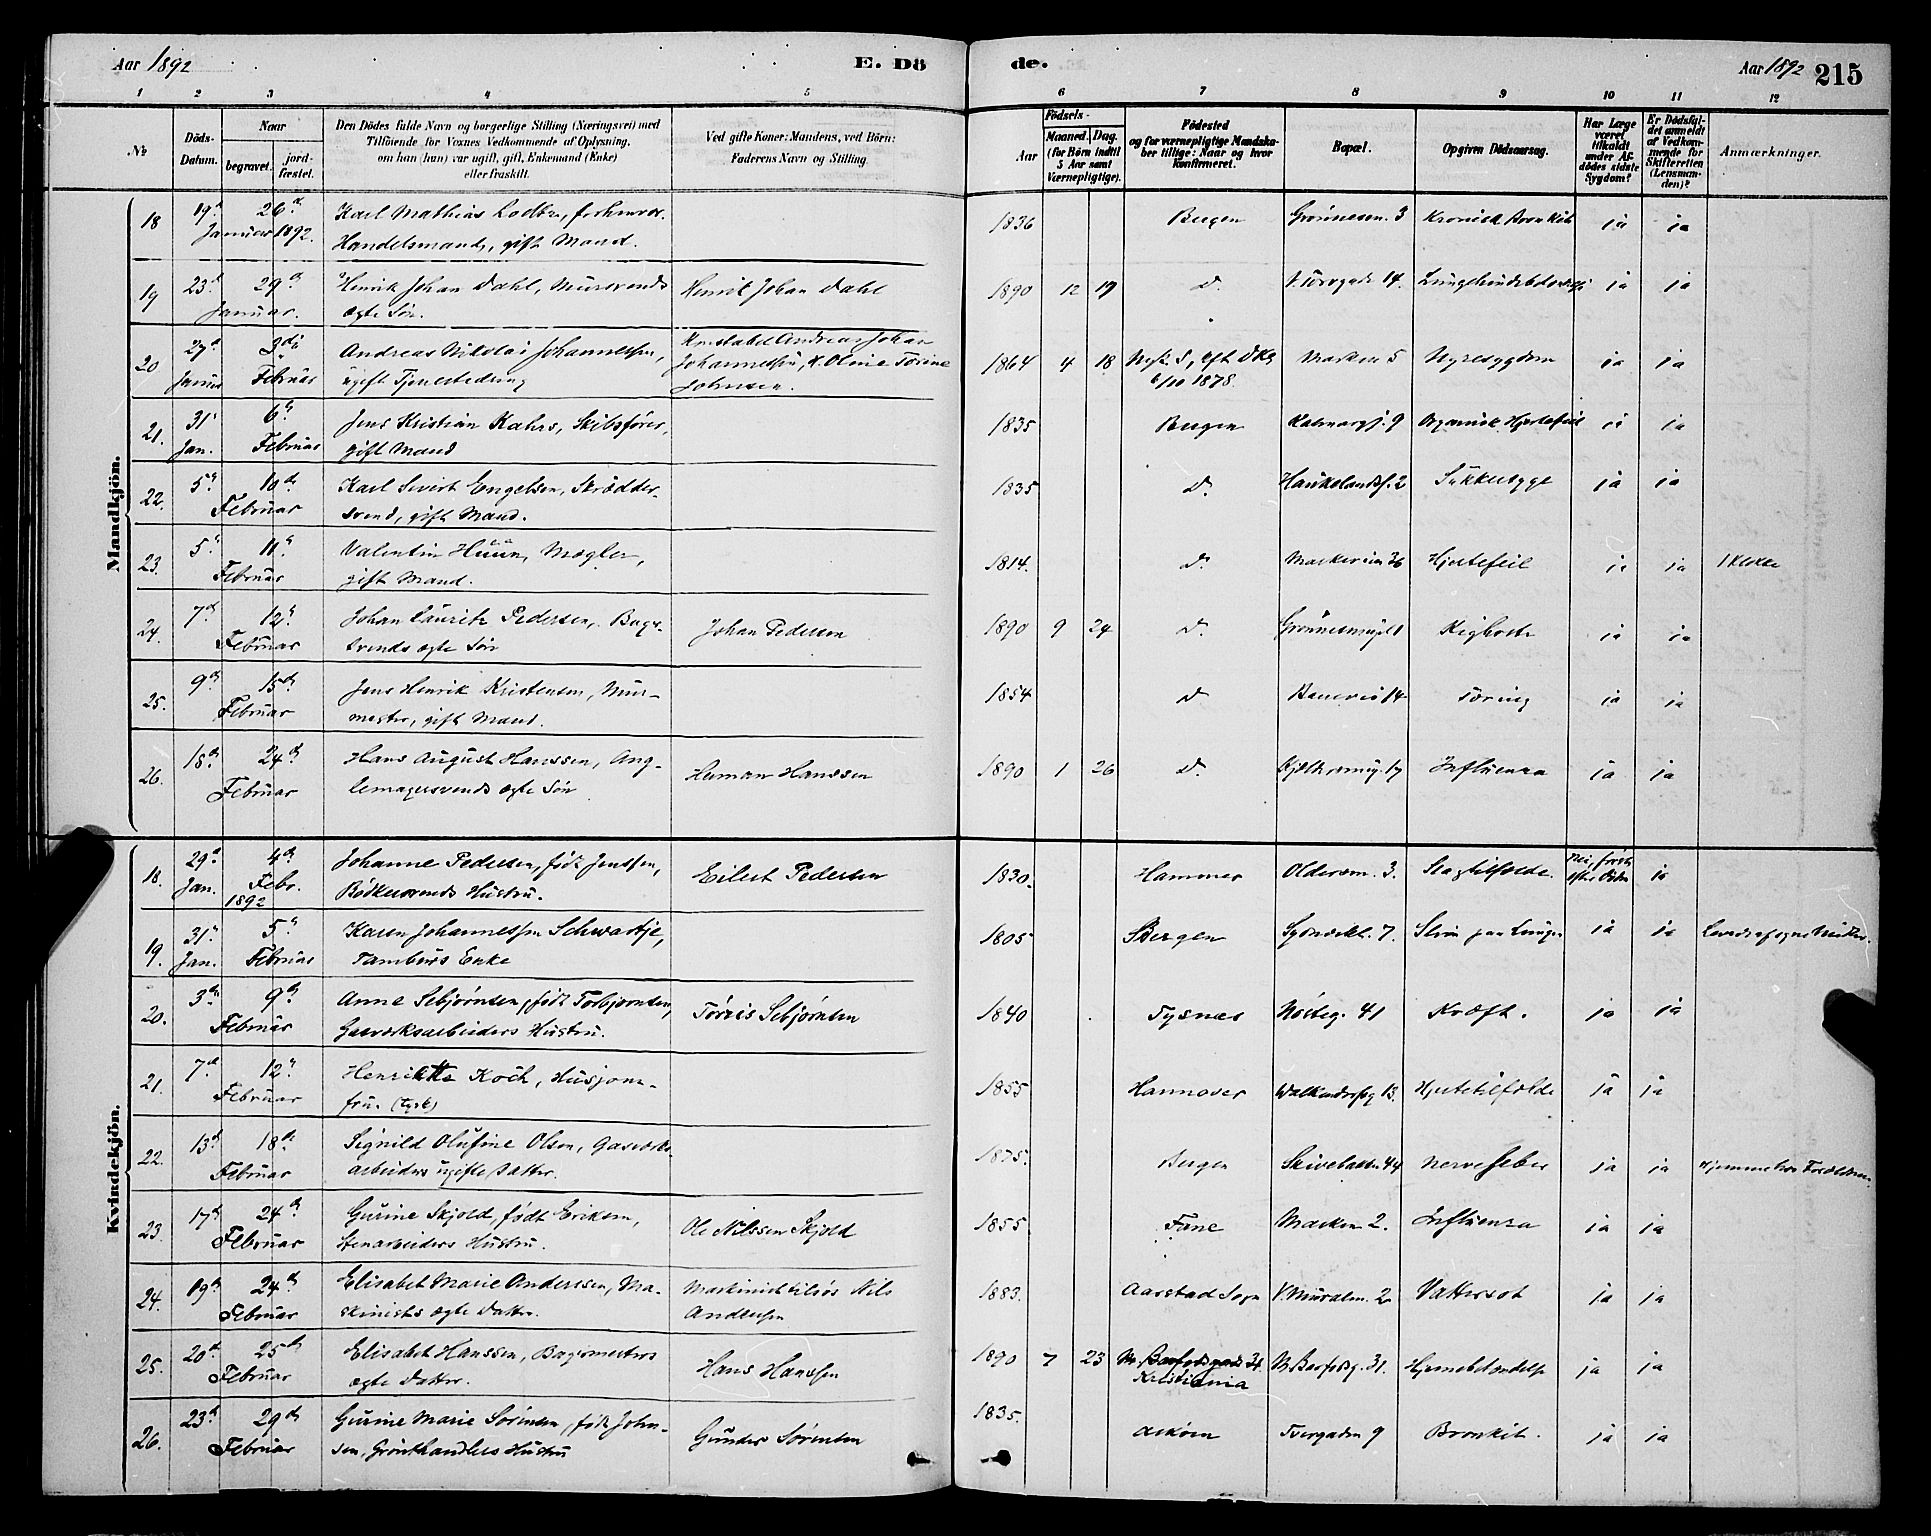 Aar 1892
E. Dö
de.
Aar 1892 215
1 2 3 4 5 6 7 8 9 10 11 12
№
Döds-
Datum.
Naar
begravet.
jord-
fæstet.
Den Dödes fulde Navn og borgerlige Stilling (Næringsvei) med
Tilföiende for Voxnes Vedkommende af Oplysning,
om han (hun) var ugift, gift, Enkemand (Enke)
eller fraskilt.
Ved gifte Koner: Mandens, ved Börn:
Faderens Navn og Stilling.
Födsels-
Aar
Maaned. Dag.
(for Börn indtil
5 Aar samt
Værnepligtige).
Födested
og for værnepligtige Mandska-
ber tillige: Naar og hvor
konfirmeret.
Bopæl.
Opgiven Dödsaarsag.
Har Læge
været
tilkaldt
under Af-
dödes sidste
Sygdom?
Er Dödsfal-
det anmeldt
af Vedkom-
mende for
Skifteretten
(Lensman-
den)?
Anmærkninger.
Mandkjön.
18 19d Januar 26d 1892. Karl Mathias, forhenvær.
Handelsmand, gift Mand.
1836 Bergen 3 Kronisk Bronkit ja ja
19 23d 29d Januar. Henrik Johan Dahl, Mursvends
ægte Sön. Henrik Johan Dahl
1890 12 19 d. 14. ja ja
20 27d Januar 3die Februar Andreas Nikolai Johannessen,
ugift Tjenestedreng
Konstabel Andreas Johan
Johannessen, Oline Torine
Johnsen.
1864 4 18 6/10 1878. Marken 5 Nyresygdom ja ja
21. 31 Jan. 6 Februar Jens Kristian Kahrs, Skibsförer,
gift Mand
1835 Bergen 9 Organisk Hjertefeil ja ja
22. 5 10de Februar Karl Sivert Engelsen, Skrædder-
svend, gift Mand.
1835 d. 2 Sukkersyge ja ja
23. 5 11 Februar Valentin Huun, Mægler,
gift Mand.
1814. d. 36 Hjertefeil ja ja 1 Klokke
24. 7d 12 Februar Johan Lauritz Pedersen, Bager-
svends ægte Sön Johan Pedersen
1890 9 24 d. Kighoste ja ja
25. 9de 15de Februar Jens Henrik Kristensen, Mur-
mester, gift Mand.
1854 d 14 Tæring ja ja
26. 18de 24de Februar Hans August Hanssen, Ang-
lemagersvends ægte Sön Herman Hanssen
1890 1 26 d. Influenza ja ja
Kvindekjön.
18. 29d Jan. 4de Febr. 1892 Johanne Pedersen, född Jenssen,
Bödkersvends Hustru. Eilert Pedersen
1830. Hammer 3. Slagtilfælde. Nei, först
efter Döden ja
19. 31 Jan. 5 Februar Karen Johannessen Schwartje,
Tamburs Enke
1805 Bergen 7. Slim paa Lunger ja ja Levede af egne Midler.
20. 3de 9de Februar Anne Sebjörnsen, född Torbjörnsen,
Gasværksarbeiders Hustru. Törris Sebjörnsen
1840 Tysnæs Nösteg. 41 Kræft. ja ja
21. 7d 12 Februar Henriette Koch, Husjom-
fru. (tysk)
1855 Hannover 13. Hjertetilfælde ja ja
22. 13d 18de Februar Signild Olufine Olsen, Gasværks-
arbeiders ugifte Datter.
1875. Bergen 44 Nervefeber ja ja Hjemme hos Forældrene.
23. 17de 24de Februar Gurine Skjold, född Eriksen,
Stenarbeiders Hustru. Ole Nilssen Skjold
1855. Fane Marken 2. Influenza ja ja
24. 19de 24de Februar Elisabet Marie Anderssen, Ma-
skinists ægte Datter. Maskinist tilsös Nils
Anderssen
1883. Aarstad Sogn V. Muralm. 2 Vattersot ja ja
25. 20de 25de Februar Elisabet Hanssen, Bagermesters
ægte Datter. Hans Hanssen
1890 7 23 31.
Kristiania 31. ja ja
26. 23de 29de Februar Gurine Marie Sörensen, född John-
sen, Grönthandlers Hustru Gunder Sörensen
1835. Asköen 9 Bronkit. ja ja